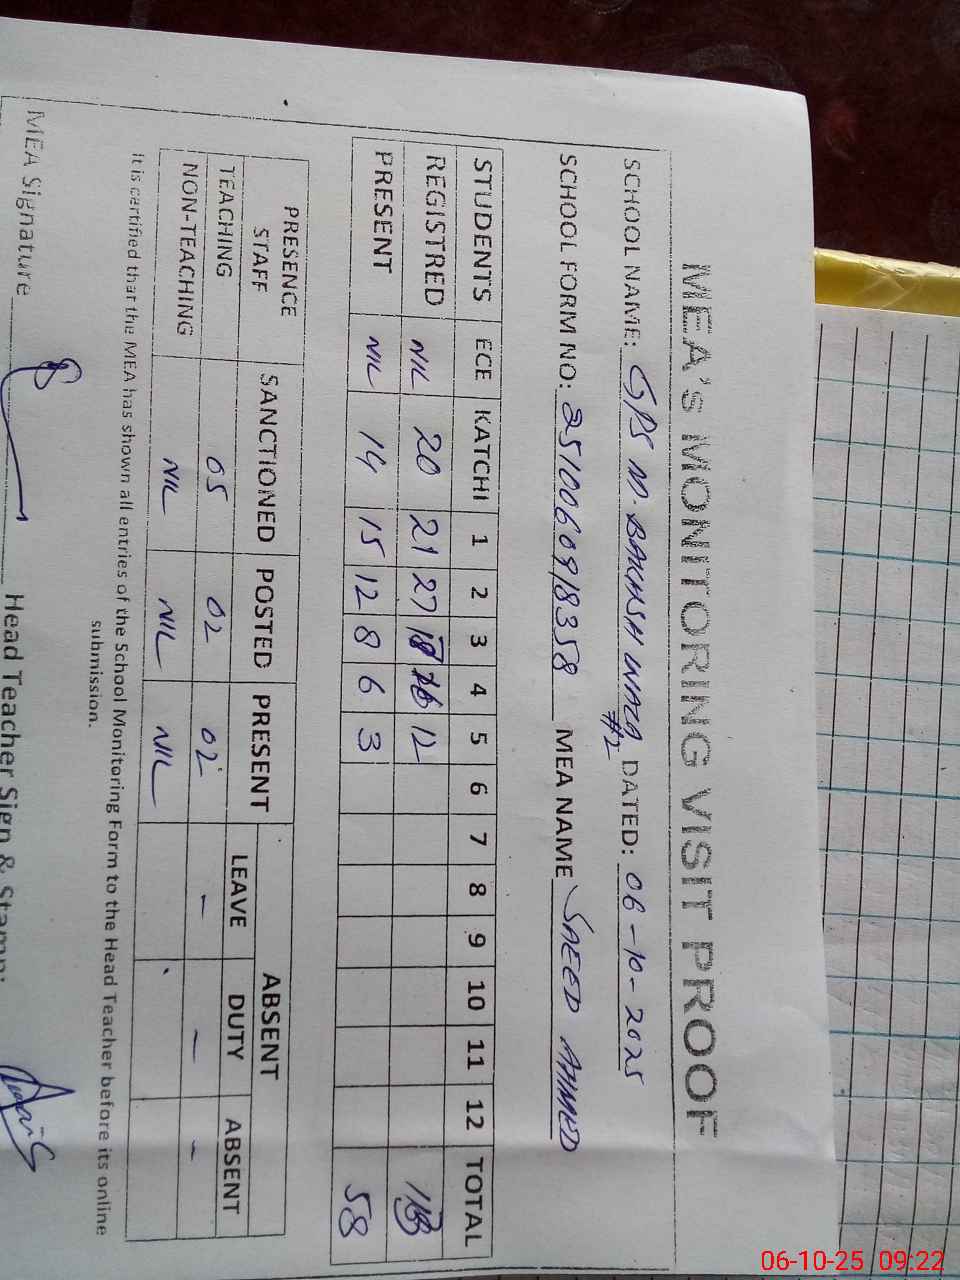 MEA's MONITORING VISIT PROOF
SCHOOL NAME: GPS M. BAKHSH WALA #2 DATED: 06-10-2025
SCHOOL FORM NO: 2510060918358 MEA NAME SAEED AHMED
STUDENTS ECE KATCHI 1 2 3 4 5 6 7 8 9 10 11 12 TOTAL
REGISTRED NIL 20 21 27 12
PRESENT NIL 14 15 12 8 6 3 58
PRESENCE STAFF SANCTIONED POSTED PRESENT ABSENT
LEAVE DUTY ABSENT
TEACHING 05 02 02 - - -
NON-TEACHING NIL NIL NIL
It is certified that the MEA has shown all entries of the School Monitoring Form to the Head Teacher before its online
submission.
MEA Signature Head Teacher Sign & Stamp:
06-10-25 09:22